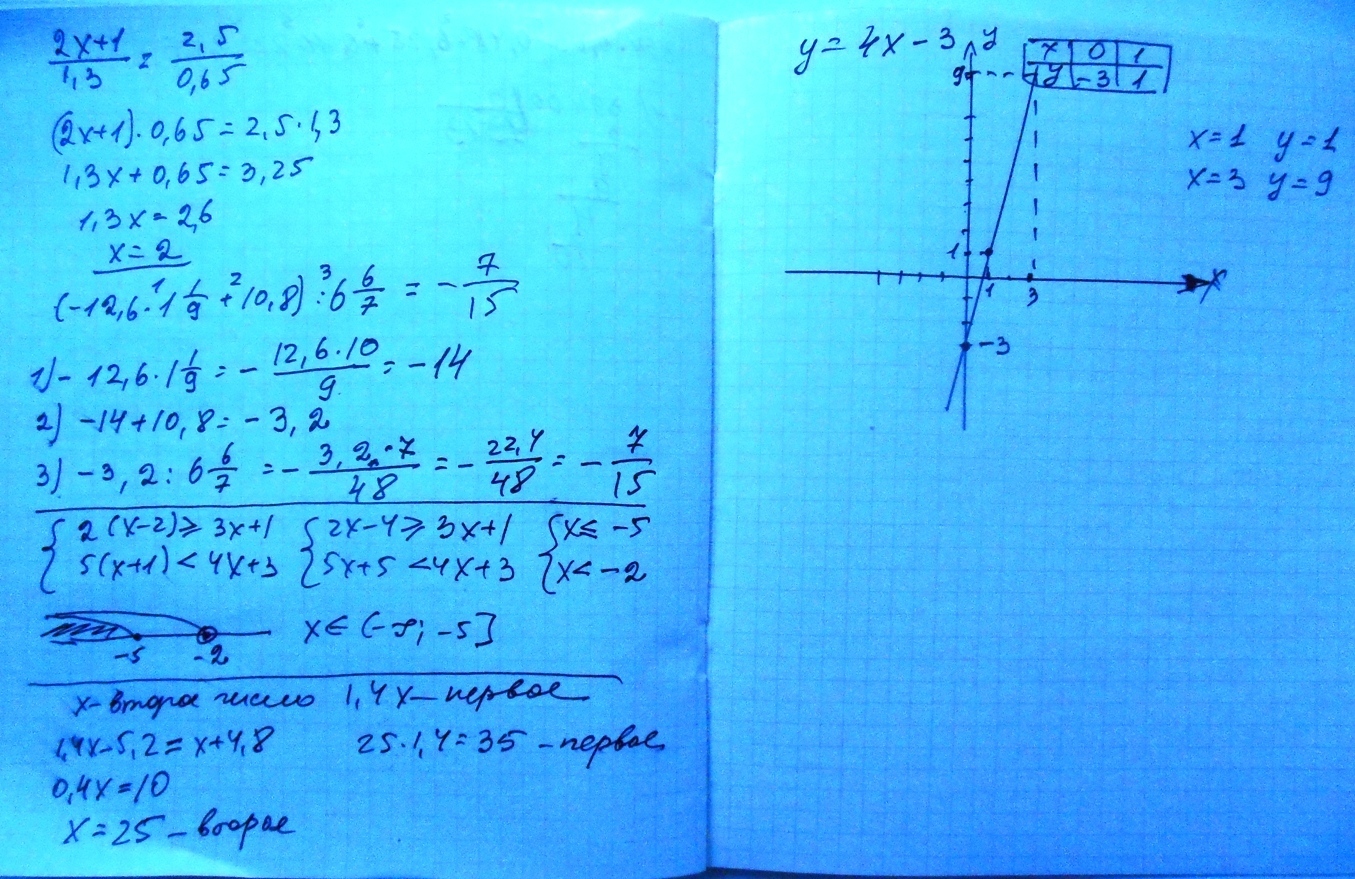 2x+1/1,3 = 2,5/0,65
(2x+1)·0,65=2,5·1,3
1,3x+0,65=3,25
1,3x=2,6
x=2
(-12,6 ·¹ 1 1/9 +² 10,8) :³ 6 6/7 = - 7/15
1) - 12,6·1 1/9 = - 12,6·10/9 = -14
2) -14+10,8= -3,2
3) -3,2 : 6 6/7 = - 3,2·7/48 = - 22,4/48 = - 7/15
{ 2(x-2)⩾3x+1 { 2x-4⩾3x+1 { x⩽-5
5(x+1)<4x+3 5x+5<4x+3 x<-2
-5 -2 x∈(-∞; -5]
x-второе число 1,4x-первое
1,4x-5,2=x+4,8 25·1,4=35 -первое
0,4x=10
x=25-второе
y=4x-3 y
x 0 1
9 y -3 1
x=1 y=1
x=3 y=9
1
1 3 x
-3